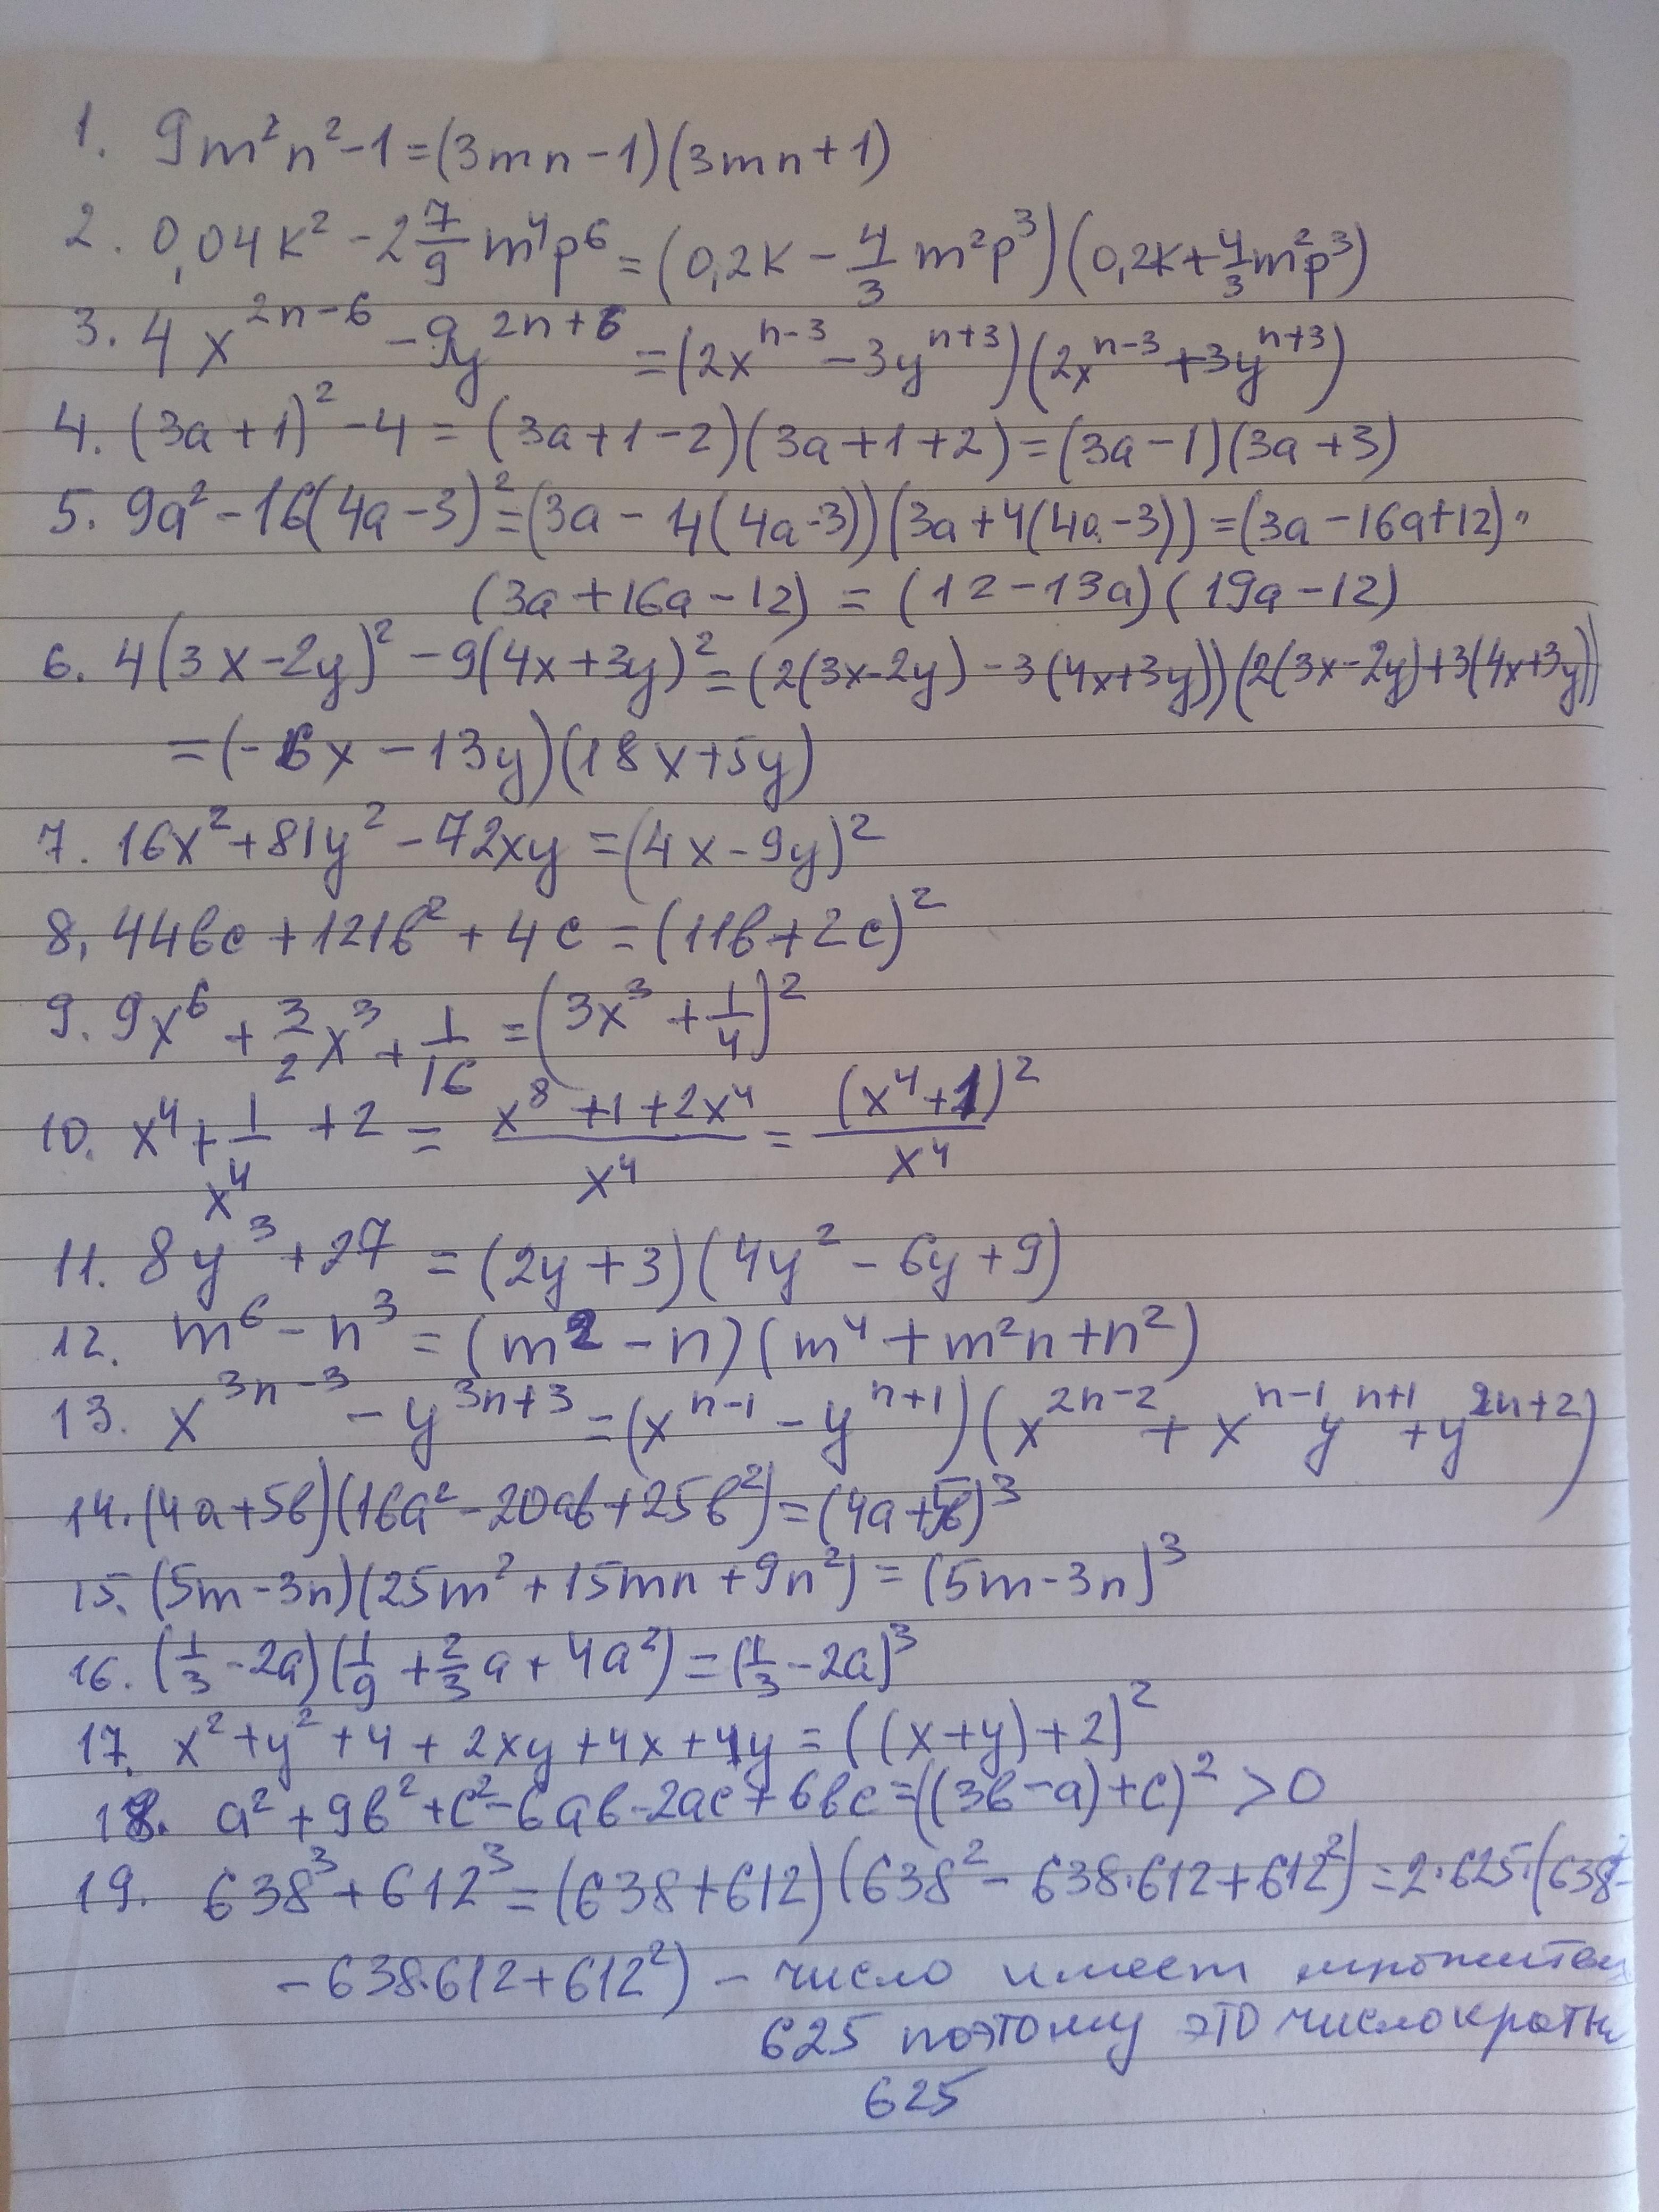 1. 9m²n²-1=(3mn-1)(3mn+1)
2. 0,04k²-2 7/9 m⁴p⁶=(0,2k-4/3 m²p³)(0,2k+4/3 m²p³)
3. 4x²ⁿ⁻⁶-9y²ⁿ⁺⁶=(2xⁿ⁻³-3yⁿ⁺³)(2xⁿ⁻³+3yⁿ⁺³)
4. (3a+1)²-4=(3a+1-2)(3a+1+2)=(3a-1)(3a+3)
5. 9a²-16(4a-3)²=(3a-4(4a-3))(3a+4(4a-3))=(3a-16a+12)·
(3a+16a-12)=(12-13a)(19a-12)
6. 4(3x-2y)²-9(4x+3y)²=(2(3x-2y)-3(4x+3y))(2(3x-2y)+3(4x+3y))
=(-6x-13y)(18x+5y)
7. 16x²+81y²-72xy=(4x-9y)²
8. 44bc+121b²+4c=(11b+2c)²
9. 9x⁶+3/2 x³+1/16=(3x³+1/4)²
10. x⁴+1/x⁴+2=(x⁸+1+2x⁴)/x⁴=(x⁴+1)²/x⁴
11. 8y³+27=(2y+3)(4y²-6y+9)
12. m⁶-n³=(m²-n)(m⁴+m²n+n²)
13. x³ⁿ⁻³-y³ⁿ⁺³=(xⁿ⁻¹-yⁿ⁺¹)(x²ⁿ⁻²+xⁿ⁻¹yⁿ⁺¹+y²ⁿ⁺²)
14. (4a+5b)(16a²-20ab+25b²)=(4a+5b)³
15. (5m-3n)(25m²+15mn+9n²)=(5m-3n)³
16. (1/3-2a)(1/9+2/3 a+4a²)=(1/3-2a)³
17. x²+y²+4+2xy+4x+4y=((x+y)+2)²
18. a²+9b²+c²-6ab-2ac+6bc=((3b-a)+c)²>0
19. 638³+612³=(638+612)(638²-638·612+612²)=2·625·(638²-
-638·612+612²) - число имеет множитель
625 поэтому это число кратн
625